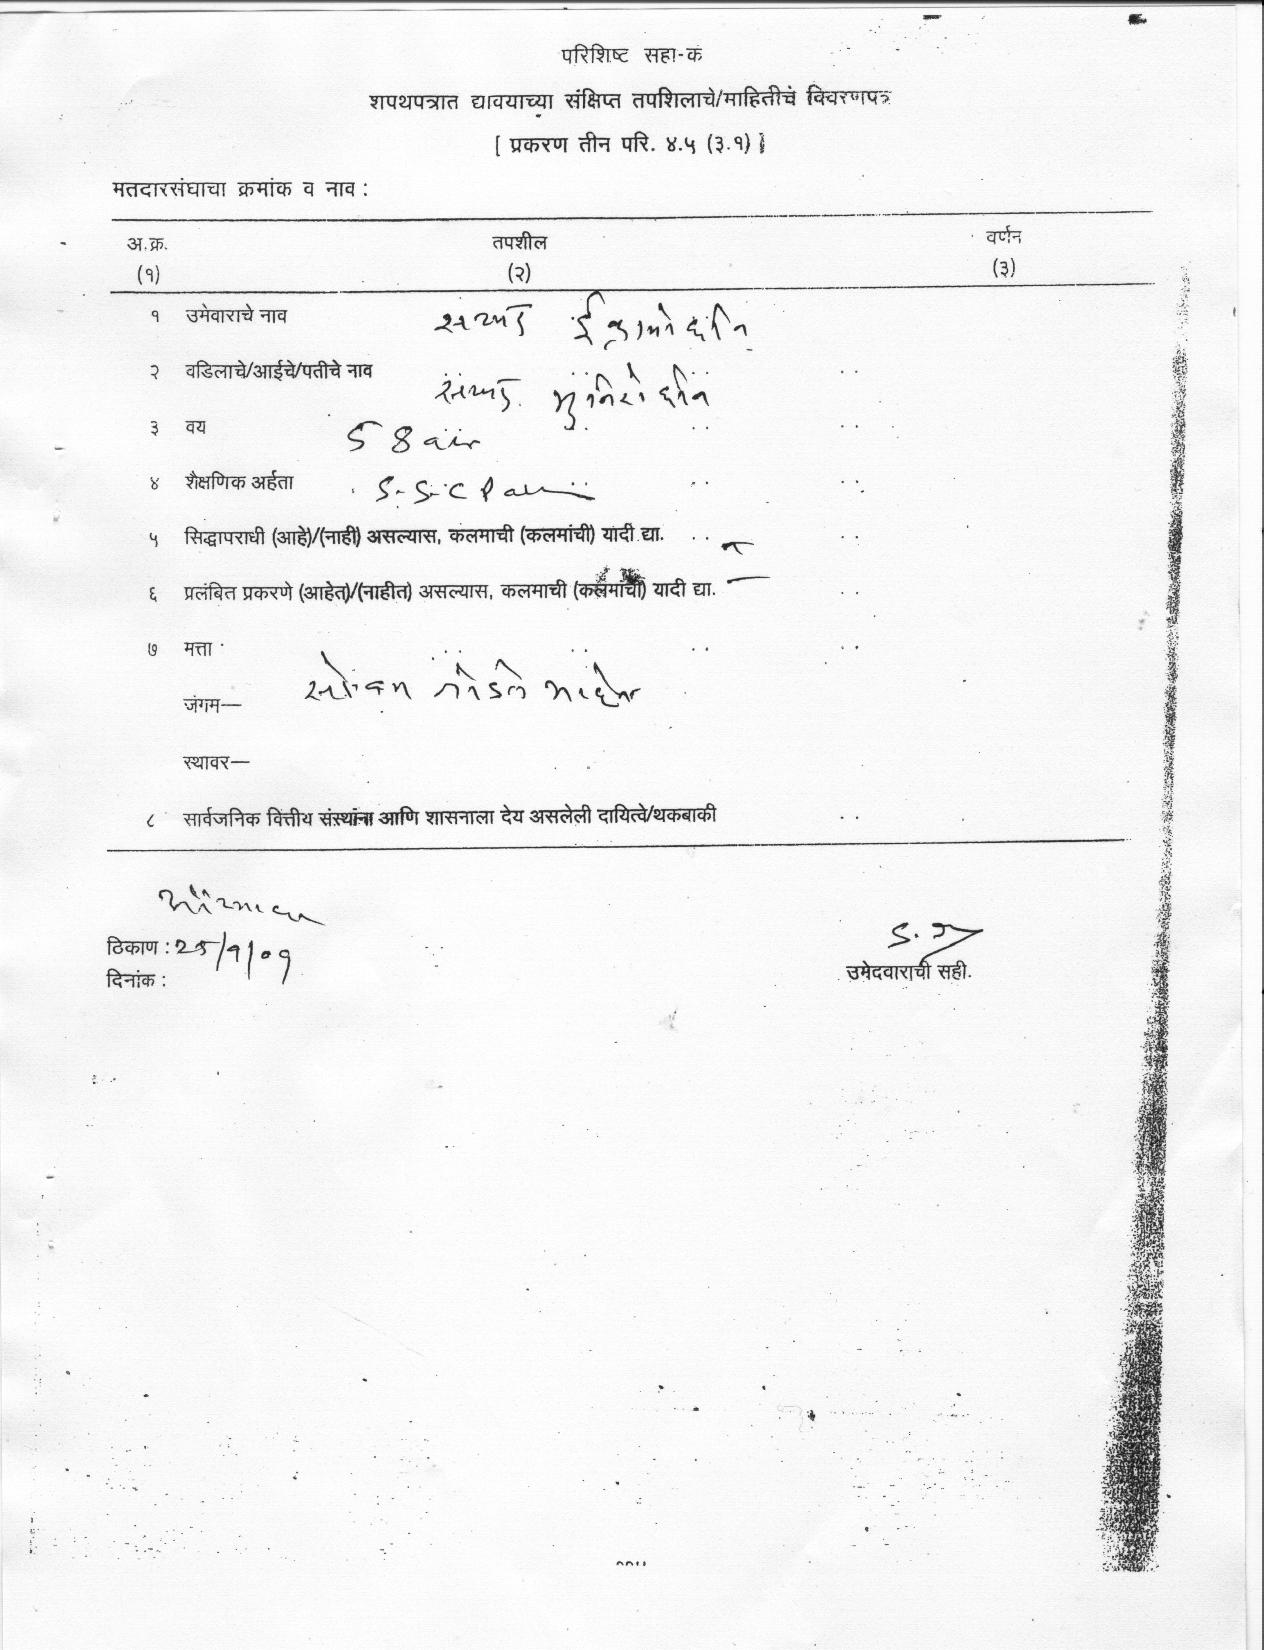 परिशिष्ट सहा-क
शपथपत्रात द्यावयाच्या संक्षिप्त तपशिलाचे/माहितीचे विवरणपत्र
[ प्रकरण तीन परि. ४.५ (३.१) ]
मतदारसंघाचा क्रमांक व नाव :
अ.क्र. तपशील वर्णन
(१) (२) (३)
१ उमेवाराचे नाव सय्यद
२ वडिलाचे/आईचे/पतीचे नाव सय्यद
३ वय 58
४ शैक्षणिक अर्हता S-S-C
५ सिद्धापराधी (आहे)/(नाही) असल्यास, कलमाची (कलमांची) यादी द्या.
६ प्रलंबित प्रकरणे (आहेत)/(नाहीत) असल्यास, कलमाची (कलमांची) यादी द्या.
७ मत्ता
सोबत जोडले
जंगम—
स्थावर—
८ सार्वजनिक वित्तीय संस्थांना आणि शासनाला देय असलेली दायित्वे/थकबाकी
ठिकाण : २५/९/०९
दिनांक :
उमेदवाराची सही.